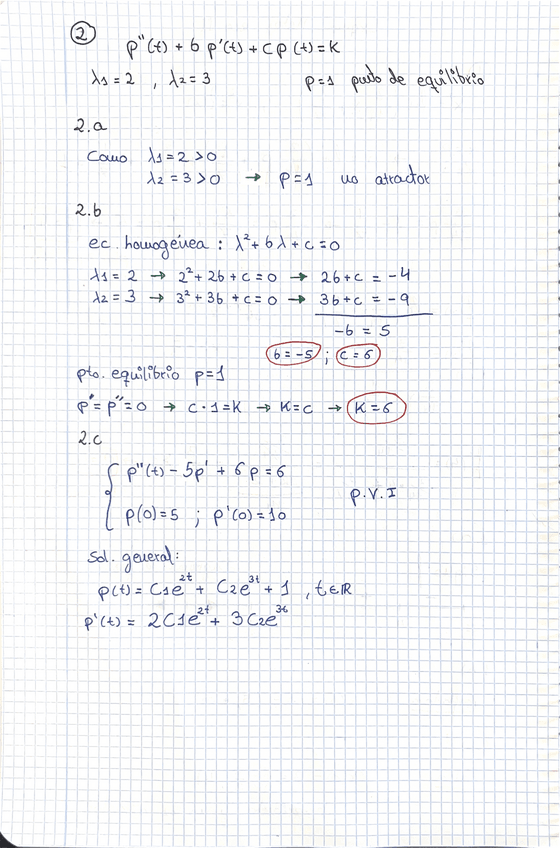 2
p''(t) + b p'(t) + c p(t) = K
λ1 = 2 , λ2 = 3 p=1 punto de equilibrio
2.a
Como λ1 = 2 > 0
λ2 = 3 > 0 → p=1 no atractor
2.b
ec. homogénea : λ² + bλ + c = 0
λ1 = 2 → 2² + 2b + c = 0 → 2b + c = -4
λ2 = 3 → 3² + 3b + c = 0 → 3b + c = -9
-b = 5
b = -5 ; c = 6
pto. equilibrio p=1
p' = p'' = 0 → c · 1 = K → K = c → K = 6
2.c
p''(t) - 5p' + 6p = 6
P.V.I
p(0) = 5 ; p'(0) = 10
Sol. general:
p(t) = C1e^2t + C2e^3t + 1 , t ∈ ℝ
p'(t) = 2C1e^2t + 3C2e^3t